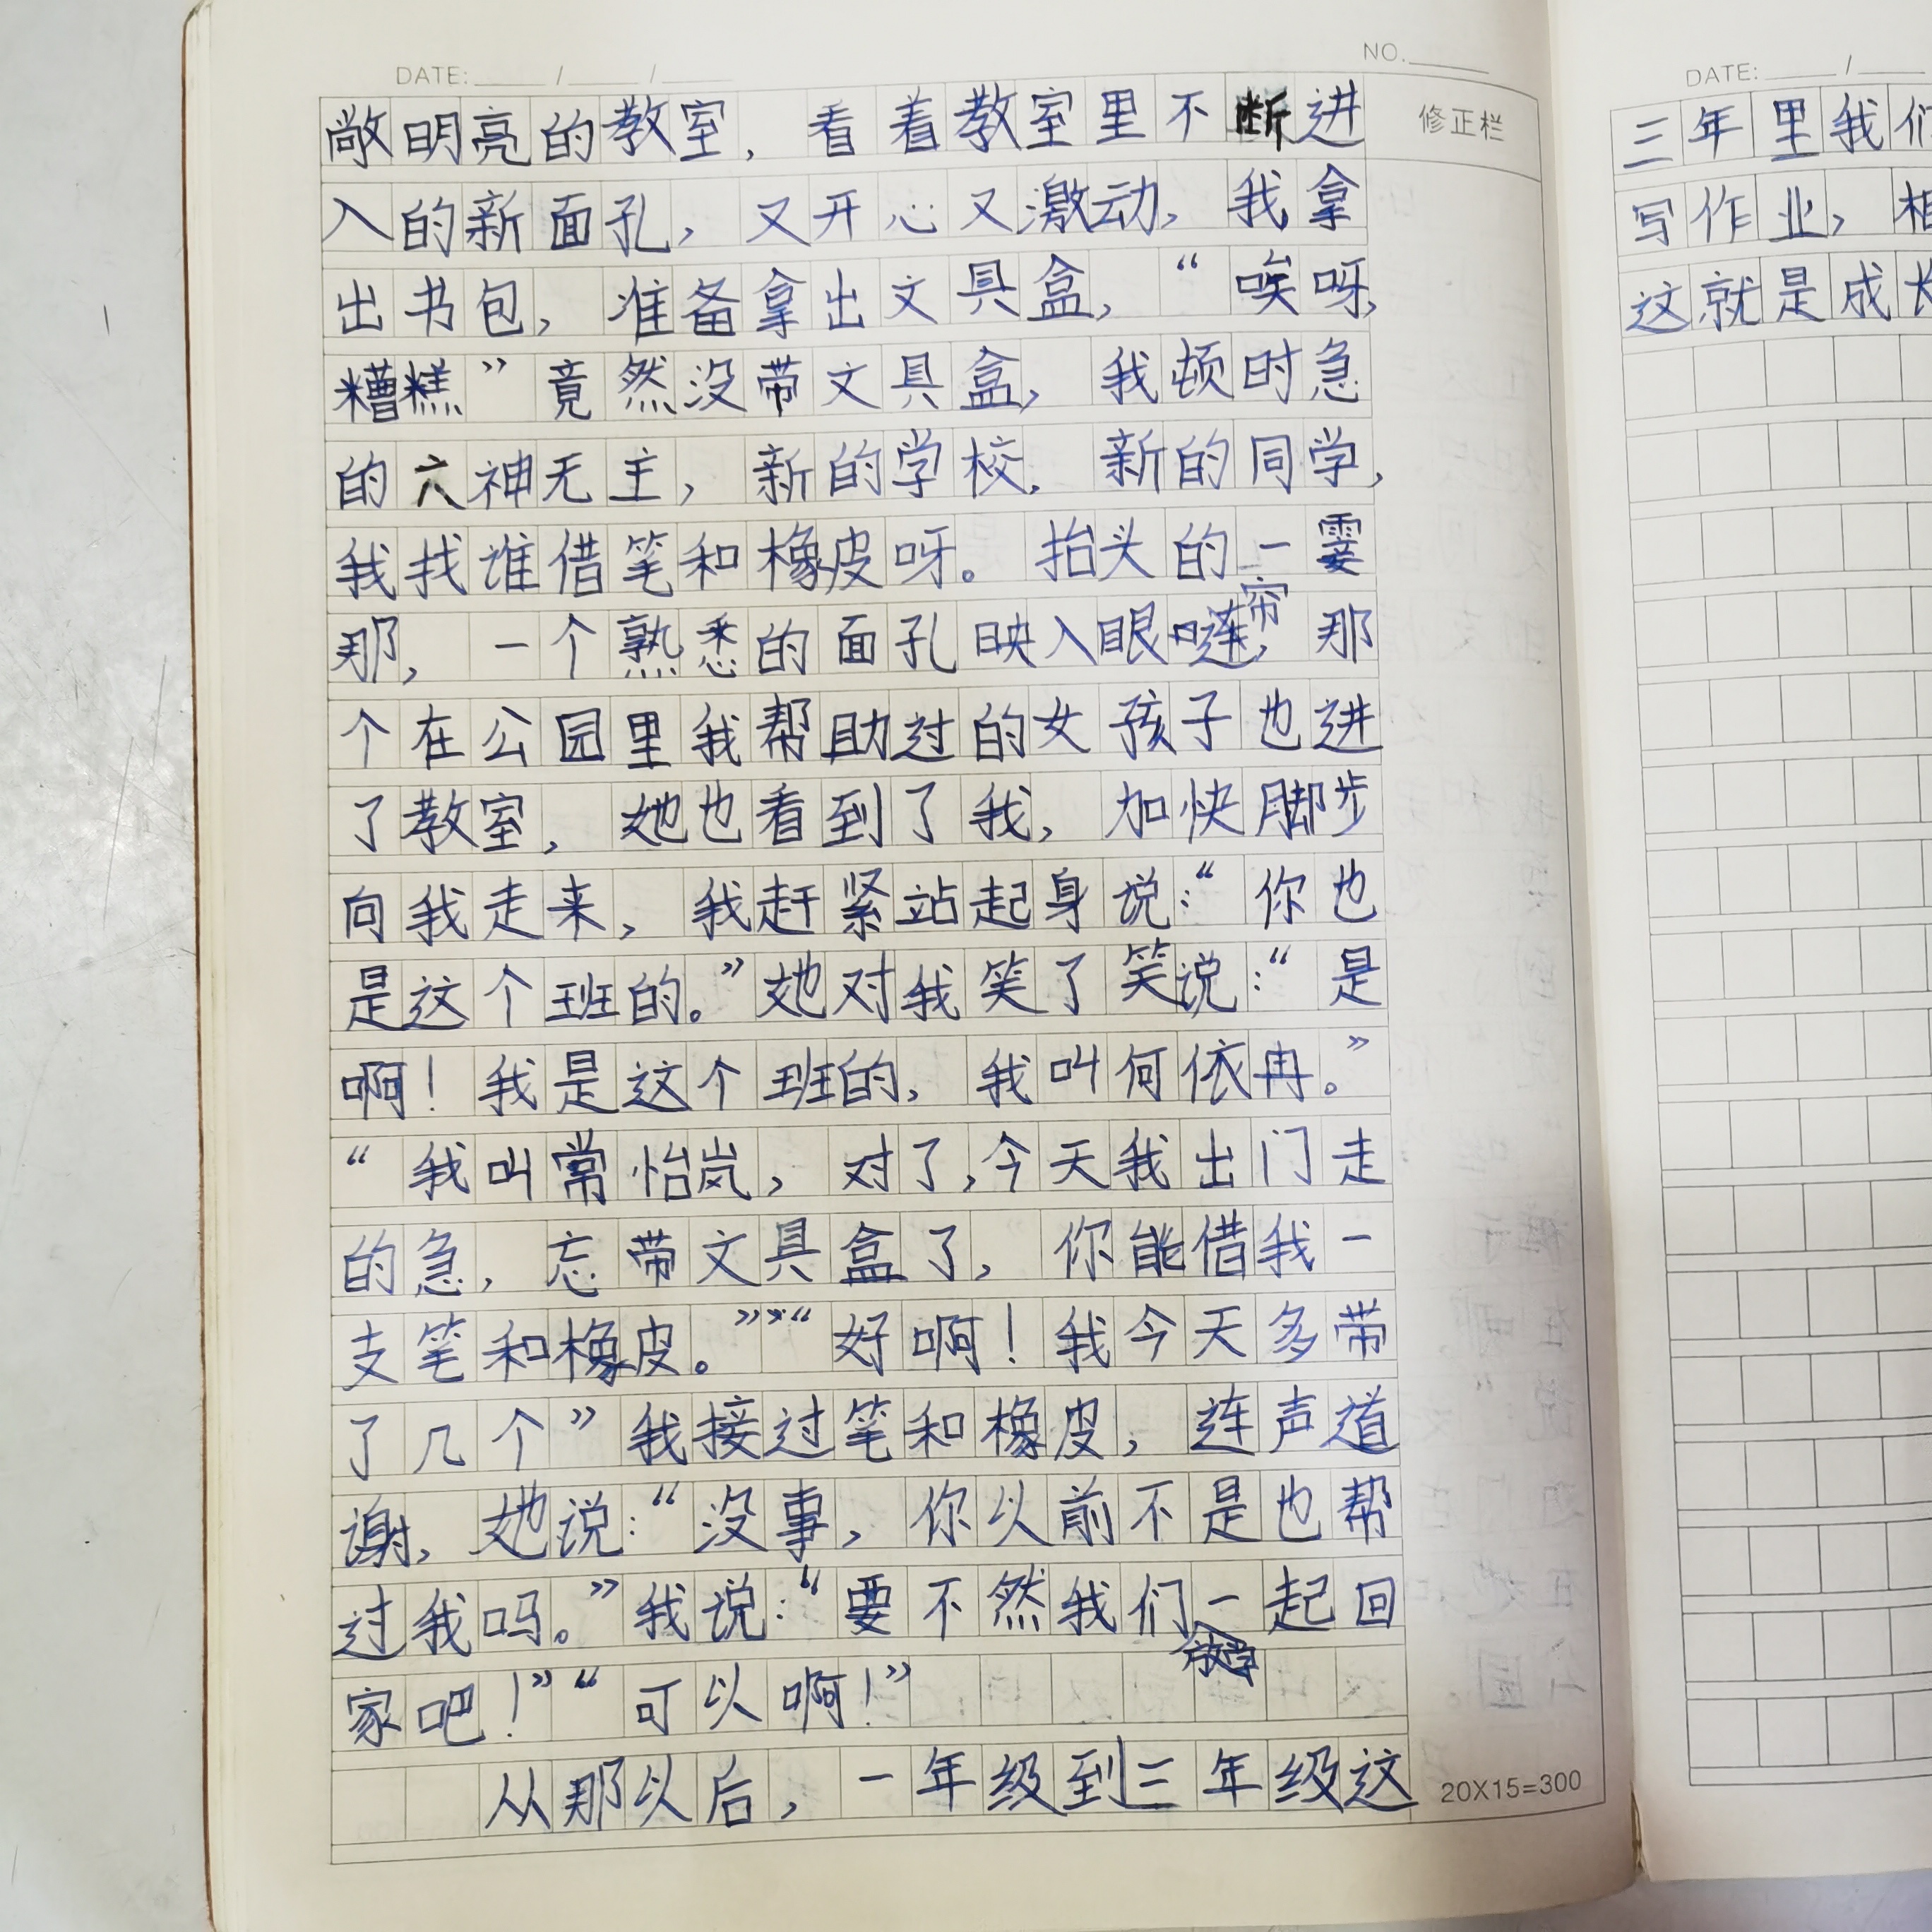 DATE: ____ / ____ / ____
NO. ____
修正栏
敞明亮的教室，看着教室里不断进
入的新面孔，又开心又激动，我拿
出书包，准备拿出文具盒，“唉呀，
糟糕”竟然没带文具盒，我顿时急
的六神无主，新的学校，新的同学，
我找谁借笔和橡皮呀。抬头的一霎
那，一个熟悉的面孔映入眼帘，那
个在公园里我帮助过的女孩子也进
了教室，她也看到了我，加快脚步
向我走来，我赶紧站起身说：“你也
是这个班的。”她对我笑了笑说：“是
啊！我是这个班的，我叫何依冉。”
“我叫常怡岚，对了，今天我出门走
的急，忘带文具盒了，你能借我一
支笔和橡皮。”“好啊！我今天多带
了几个”我接过笔和橡皮，连声道
谢，她说：“没事，你以前不是也帮
过我吗。”我说：“要不然我们放学一起回
家吧！”“可以啊！”
从那以后，一年级到三年级这
20X15=300
DATE: ____ / ____
三年里我们
写作业，相
这就是成长